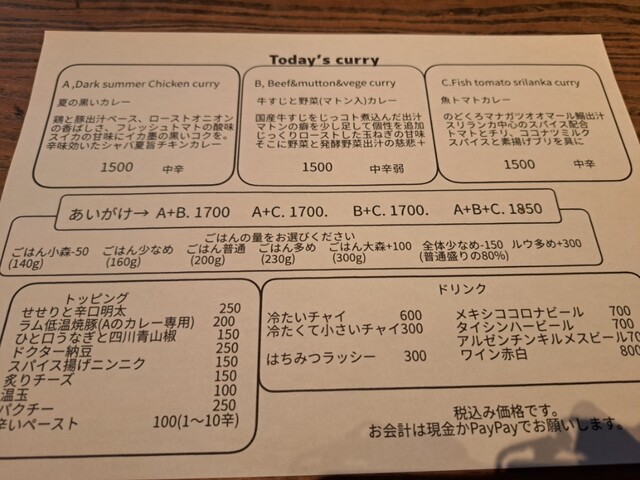 Today's curry
A ,Dark summer Chicken curry
夏の黒いカレー
鶏と豚出汁ベース、ローストオニオン
の香ばしさ、フレッシュトマトの酸味
スイカの甘味にイカ墨の黒いコクを。
辛味効いたシャバ夏旨チキンカレー
1500 中辛
B, Beef&mutton&vege curry
牛すじと野菜(マトン入)カレー
国産牛すじをじっコト煮込んだ出汁
マトンの癖を少し足して個性を追加
じっくりローストした玉ねぎの甘味
そこに野菜と発酵野菜出汁の慈悲+
1500 中辛弱
C.Fish tomato srilanka curry
魚トマトカレー
のどくろマナガツオオマール鰯出汁
スリランカ中心のスパイス配合
トマトとチリ、ココナツミルク
スパイスと素揚げブリを具に
1500 中辛
あいがけ→ A+B. 1700 A+C. 1700. B+C. 1700. A+B+C. 1850
ごはんの量をお選びください
ごはん小森-50 ごはん少なめ ごはん普通 ごはん多め ごはん大森+100 全体少なめ-150 ルウ多め+300
(140g) (160g) (200g) (230g) (300g) (普通盛りの80%)
トッピング
せせりと辛口明太 250
ラム低温焼豚(Aのカレー専用) 200
ひと口うなぎと四川青山椒 150
ドクター納豆 250
スパイス揚げニンニク 150
炙りチーズ 150
温玉 100
パクチー 250
辛いペースト 100(1〜10辛)
ドリンク
冷たいチャイ 600
冷たくて小さいチャイ300
はちみつラッシー 300
メキシココロナビール 700
タイシンハービール 700
アルゼンチンキルメスビール70
ワイン赤白 800
税込み価格です。
お会計は現金かPayPayでお願いします。